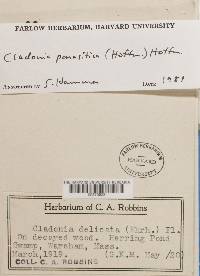 FARLOW HERBARIUM, HARVARD UNIVERSITY
Cladonia parasitica (Hoffm.) Hoffm.
ANNOTATED BY S. Hammer DATE 1989
FARLOW HERBARIUM
HARVARD
UNIVERSITY
Herbarium of C. A. Robbins
Cladonia delicata (Ehrh.) Fl.
On decayed wood. Herring Pond
Swamp, Wareham, Mass.
March, 1919. (G.K.M. May /20)
COLL. C. A. ROBBINS